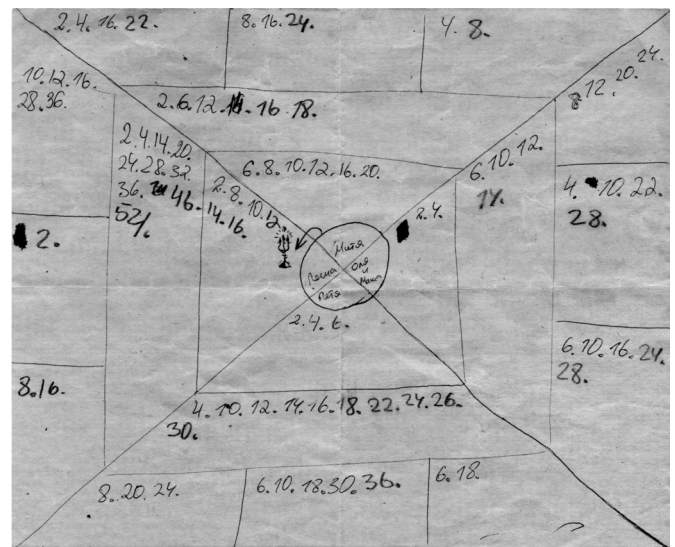 2.4.16.22.
8.16.24.
4.8.
10.12.16.
28.36.
8.12.20.24.
2.6.12.14.16.18.
2.4.14.20.
24.28.32.
36. 46.
52/.
6.8.10.12.16.20.
6.10.12.
14.
2.8.10.12.
14.16.
2.4.
4. 10.22.
28.
2.
Митя
Оля
и
Маша
Петя
2.4.6.
6.10.16.24.
28.
8.16.
4.10.12.14.16.18.22.24.26.
30.
8.20.24.
6.10.18.30.36.
6.18.